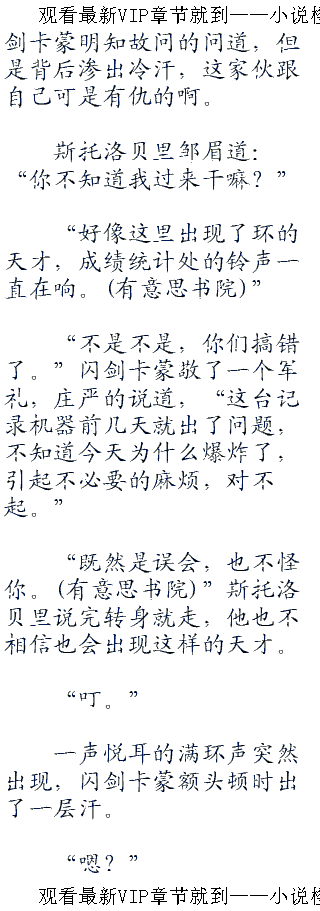 观看最新VIP章节就到——小说
剑卡蒙明知故问的问道，但
是背后渗出冷汗，这家伙跟
自己可是有仇的啊。
斯托洛贝里邹眉道：
“你不知道我过来干嘛？”
“好像这里出现了环的
天才，成绩统计处的铃声一
直在响。(有意思书院)”
“不是不是，你们搞错
了。”闪剑卡蒙敬了一个军
礼，庄严的说道，“这台记
录机器前几天就出了问题，
不知道今天为什么爆炸了，
引起不必要的麻烦，对不
起。”
“既然是误会，也不怪
你。(有意思书院)”斯托洛
贝里说完转身就走，他也不
相信也会出现这样的天才。
“叮。”
一声悦耳的满环声突然
出现，闪剑卡蒙额头顿时出
了一层汗。
“嗯？”
观看最新VIP章节就到——小说